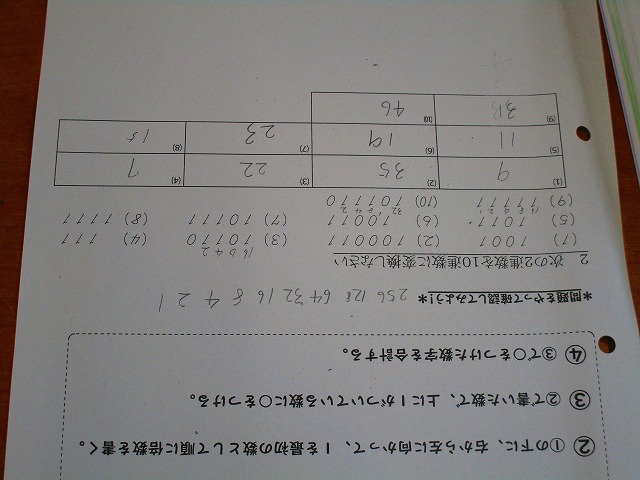 ② ①の下に、右から左に向かって、1を最初の数として順に倍数を書く。
③ ②で書いた数で、上に1がついている数に○をつける。
④ ③で○をつけた数字を合計する。
*問題をやって確認してみよう!*
256 128 64 32 16 8 4 2 1
2 次の2進数を10進数に変換しなさい
(1) 1001 (2) 100011 (3) 10110 (4) 111
(5) 1011 (6) 10011 (7) 10111 (8) 1111
(9) 11111 (10) 101110
(1) 9 (2) 35 (3) 22 (4) 7
(5) 11 (6) 19 (7) 23 (8) 15
(9) (10) 46